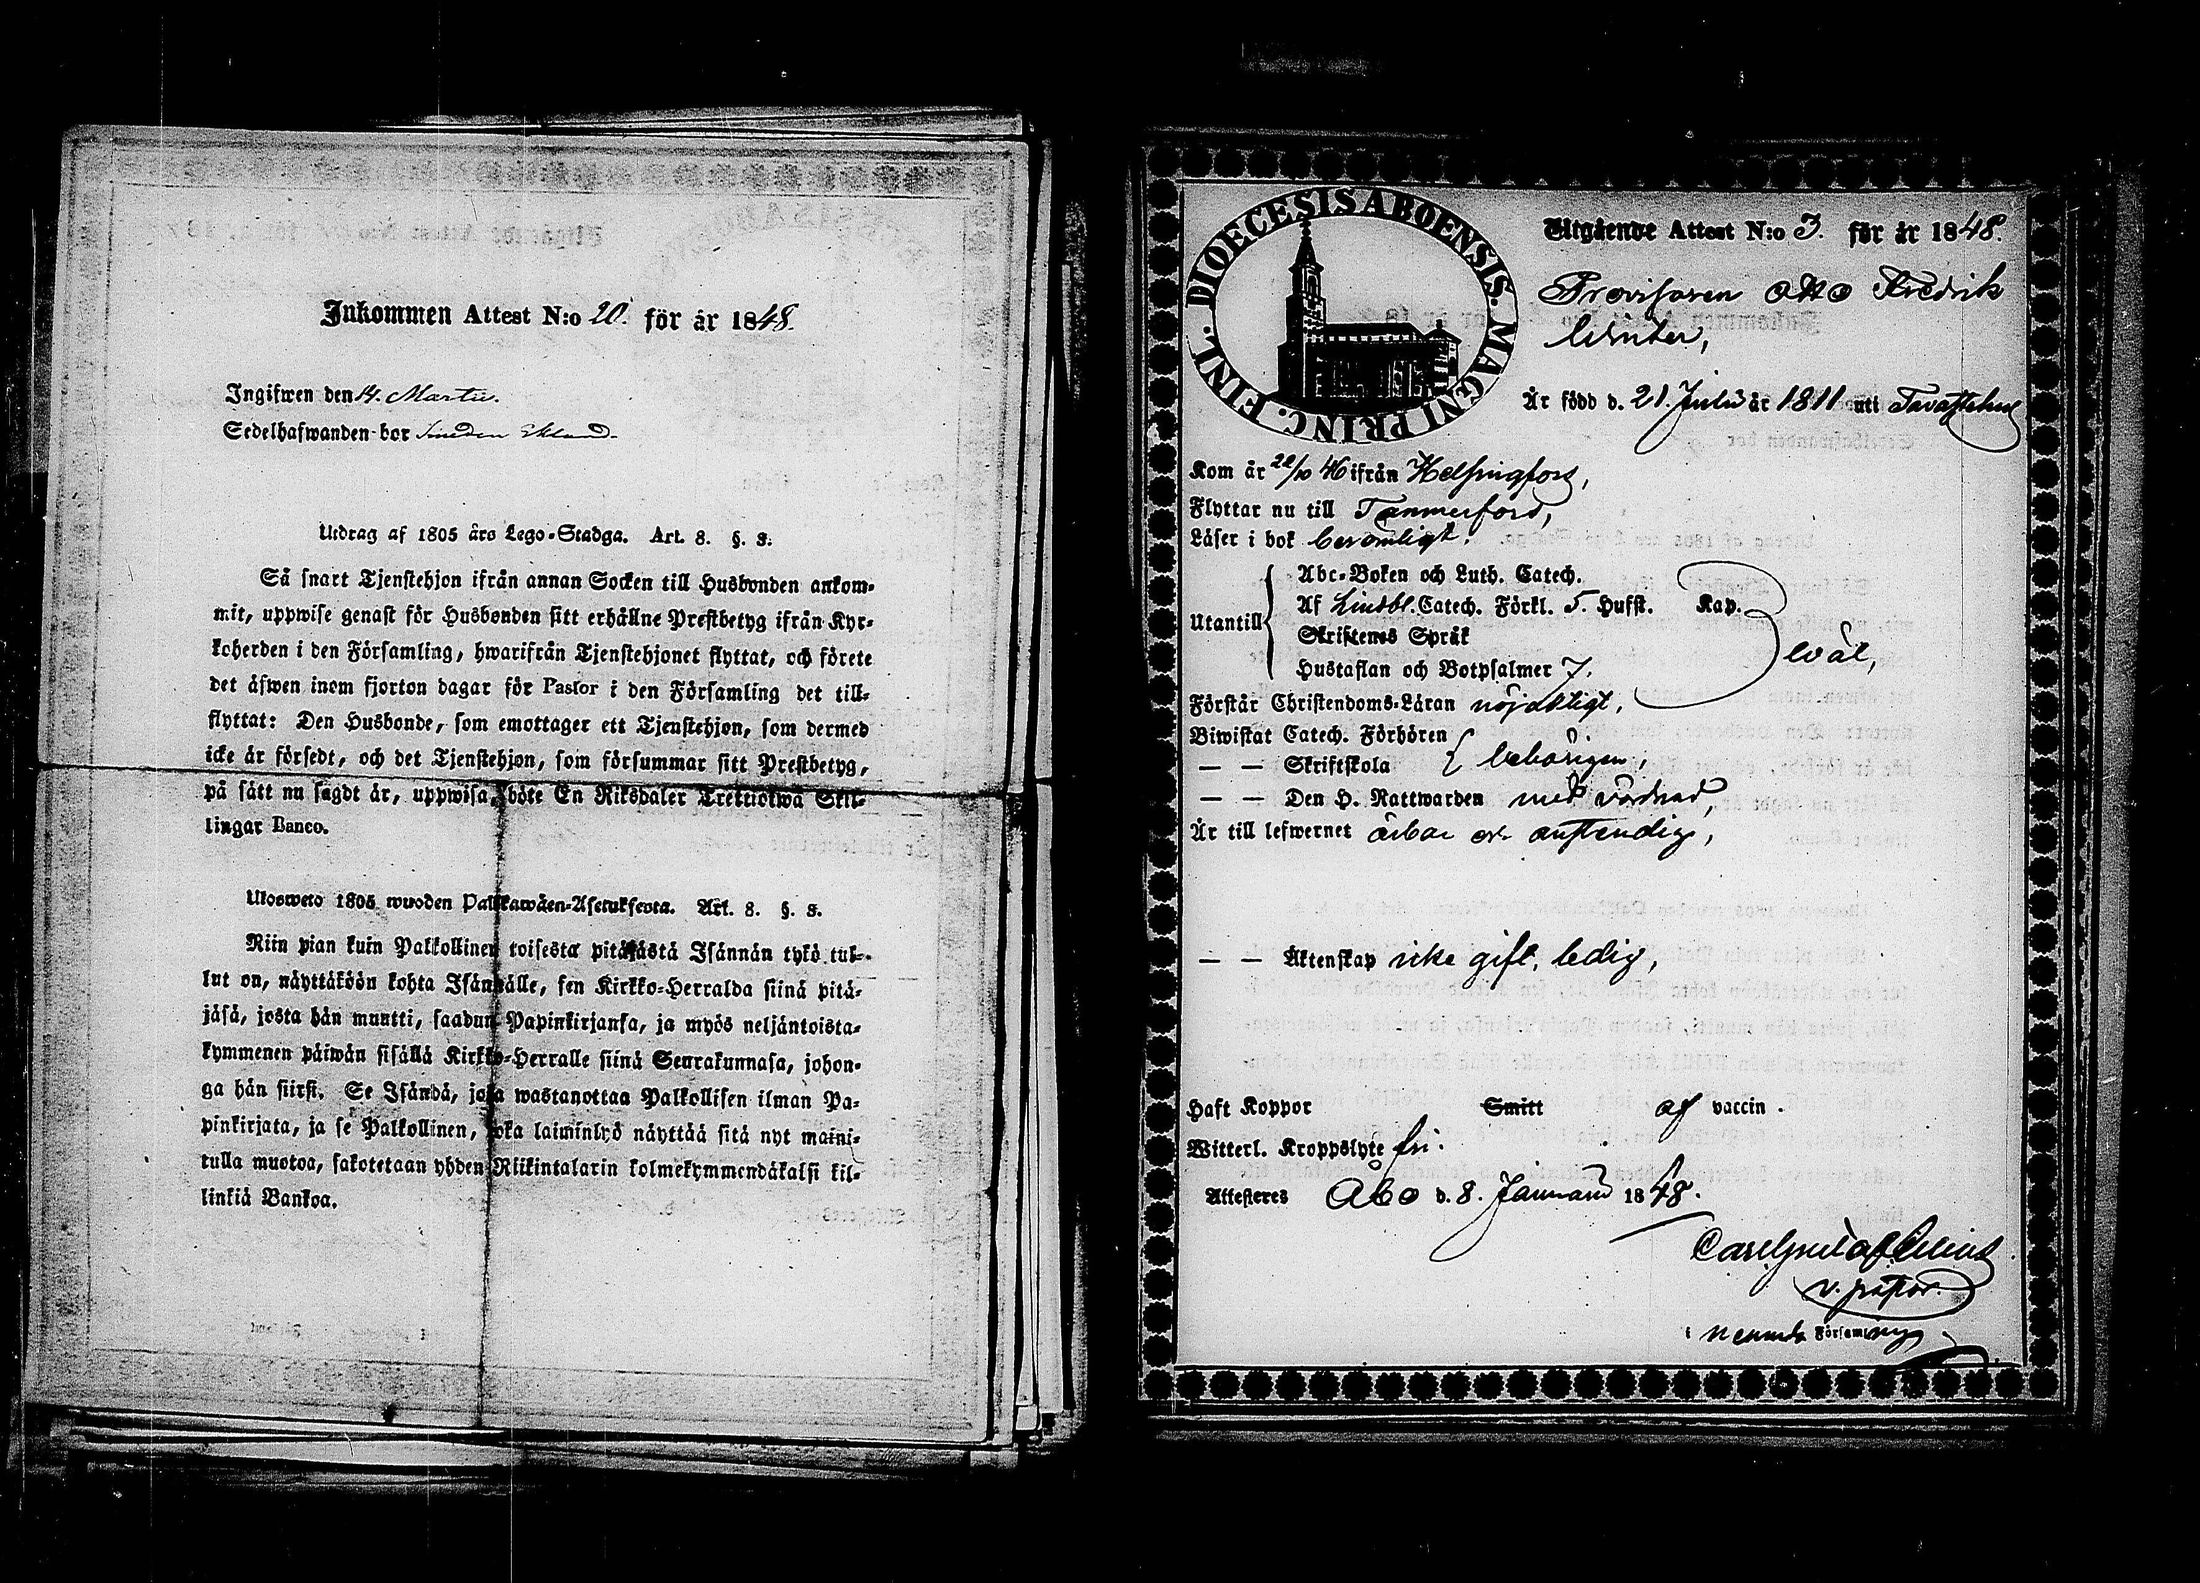 Inkommen Attest N:o 20. för år 1848.
Ingifwen den 14. Martii.
Sedelhafwanden bor
Utdrag af 1805 års Lego-Stadga. Art. 8. §. 3.
Så snart Tjenstehjon ifrån annan Socken till Husbonden ankom-
mit, uppwise genast för Husbonden sitt erhållne Prestbetyg ifrån Kyr-
koherden i den Församling, hwarifrån Tjenstehjonet flyttat, och förete
det äfwen inom fjorton dagar för Pastor i den Församling det till-
flyttat: Den Husbonde, som emottager ett Tjenstehjon, som dermed
icke är försedt, och det Tjenstehjon, som försummar sitt Prestbetyg,
på sätt nu sagdt är, uppwisa, böte En Riksdaler Trettiotwå Skil-
lingar Banco.
Ulosweto 1805 wuoden Palkkawäen-Asetuksesta. Art. 8. §. 3.
Niin pian kuin Palkollinen toisesta pitäjästä Isännän tykö tul-
lut on, näyttäköön kohta Isännälle, sen Kirkko-Herralda siinä pitä-
jäsä, josta hän muutti, saadun Papinkirjansa, ja myös neljäntoista-
kymmenen päiwän sisällä Kirkko-Herralle siinä Seurakunnasa, johon-
ga hän siirsi. Se Isändä, joka wastanottaa Palkollisen ilman Pa-
pinkirjata, ja se Palkollinen, joka laiminlyö näyttää sitä nyt maini-
tulla muotoa, sakotetaan yhden Riikintalarin kolmekymmendäkaksi kil-
linkiä Bankoa.
DIOECESIS ABOENSIS. MAGNI PRINC. FINL.
Utgående Attest N:o 3. för år 1848.
Provisoren Otto Fredrik
Winter,
Är född d. 21. Julii år 1811 uti Tavastehus
Kom år 22/10 46 ifrån Helsingfors,
Flyttar nu till Tammerfors,
Läser i bok berömligt.
Utantill
Abc-Boken och Luth. Catech.
Af Lindbl. Catech. Förkl. 5. Hufst. Kap.
Skriftenes Språk
Hustaflan och Botpsalmer 7.
wäl,
Förstår Christendoms-Läran nöjaktigt,
Biwistat Catech. Förhören
— — Skriftskola
behörigen,
— — Den H. Nattwarden med vördnad,
Är till lefwernet ärbar och anständig,
— — Äktenskap icke gift, ledig,
Haft Koppor Smitt af vaccin.
Witterl. Kroppslyte fri.
Attesteres Åbo d. 8. Januarii 1848.
v. pastor.
i nemnde Församling